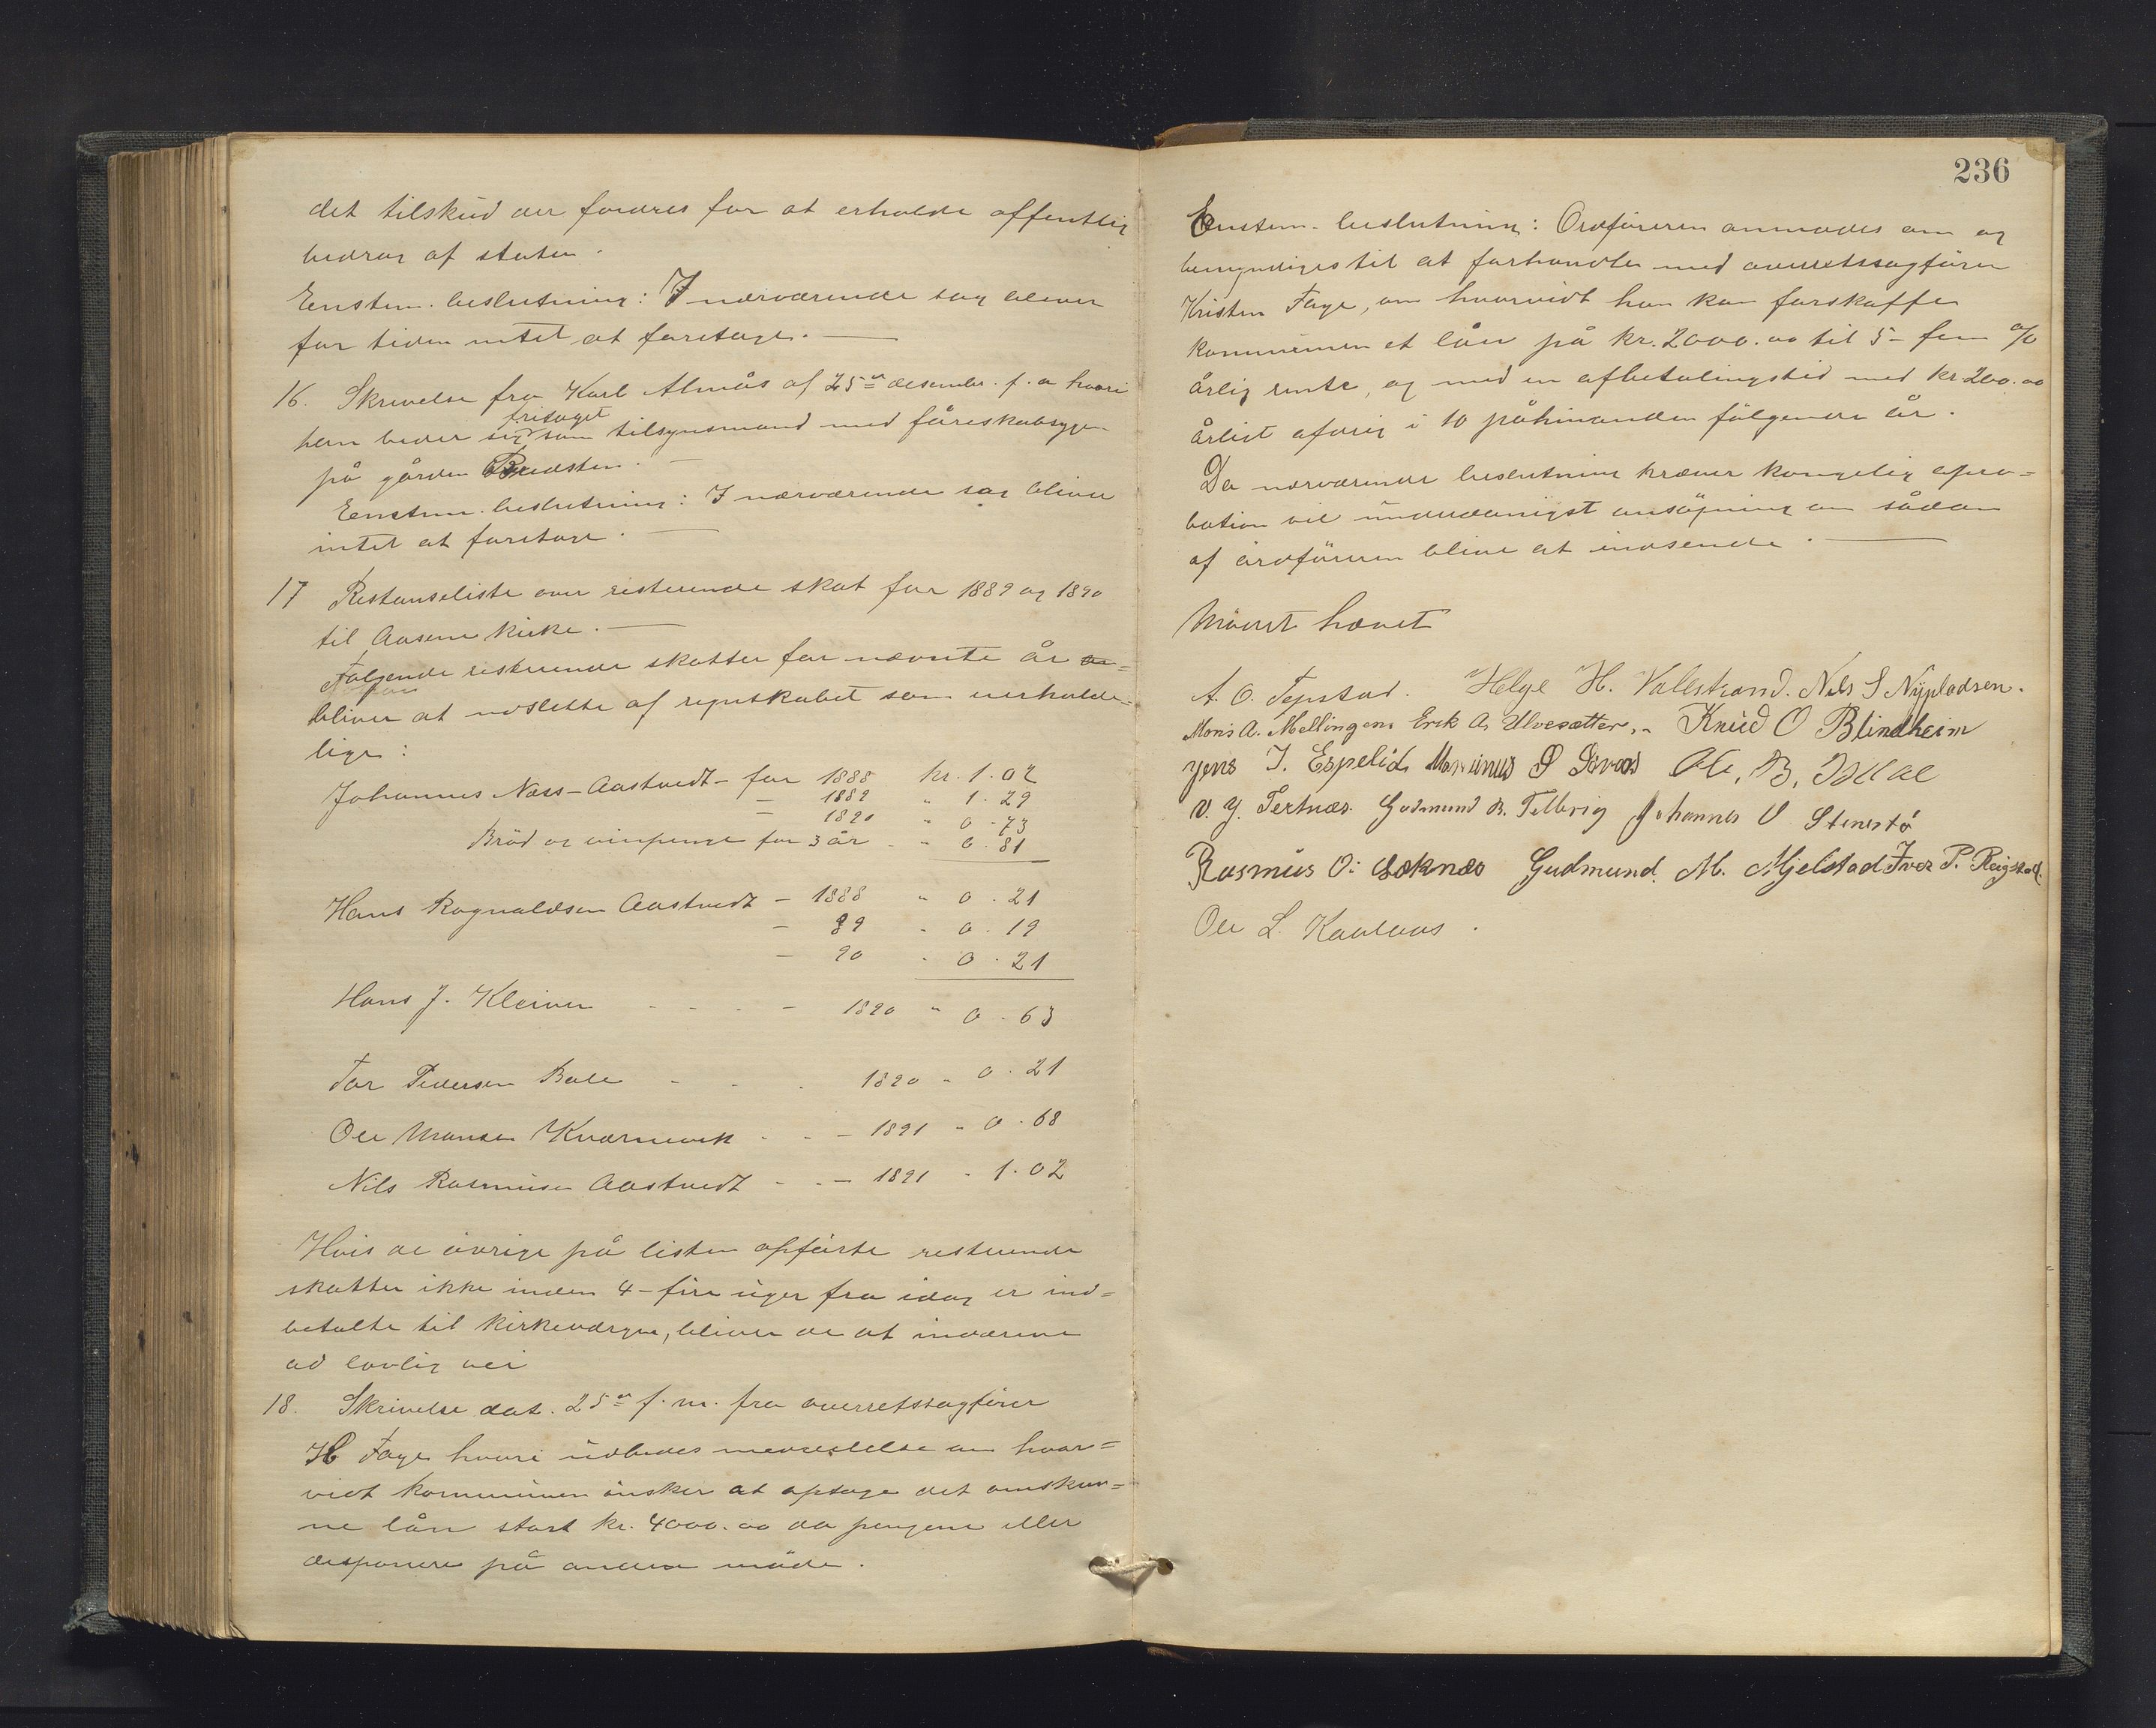 det tilskud der fordres for at erholde offentlig
bedrag af staten.
Enstem. beslutning: I nærværende sag bliver
for tiden intet at foretage. —
16. Skrivelse fra Karl Almås af 25de desember f. a hvori
fritaget
han beder sig som tilsynsmand med fåreskabsygen
på gården Bredsten. —
Enstem. beslutning: I nærværende sag bliver
intet at foretage. —
17 Restanseliste over resterende skat for 1889 og 1890
til Aasene kirke. —
Følgende resterende skatter for nævnte år
bliver at udslette af regnskabet som uerholde-
lige:
Johannes Næss-Aastvedt - for 1888 kr. 1.02
— 1889 " 1.29
— 1890 " 0.73
Brød og vinpenge for 3 år - " 0.81
Hans Ragnvaldsen Aastvedt - 1888 " 0.21
— 89 " 0.19
— 90 " 0.21
Hans J. Kleiven - - - — 1890 " 0.63
Tor Pedersen Bale - - - 1890 " 0.21
Ole Monsen Kværnevik - - — 1891 " 0.68
Nils Rasmusen Aastvedt - - — 1891 " 1.02
Hvis de øvrige på listen opførte resterende
skatter ikke inden 4-fire uger fra idag er ind=
betalte til kirkeværgen, bliver de at inddrive
ad lovlig vei
18. Skrivelse dat. 25de f. m. fra overretssagfører
K Faye hvori udbedes meddelelse om hvor=
vidt kommunen ønsker at optage det omskrev=
ne lån stort kr. 4000.00 da pengene ellers
disponeres på anden måde.
236
Enstem. beslutning: Ordføreren anmodes om og
bemyndiges til at forhandle med overretssagfører
Kristen Faye, om hvorvidt han kan forskaffe
kommunen et lån på kr. 2000.00 til 5- fem %
årlig rente, og med en afbetalingstid med kr 200.00
årligt afdrag i 10 påhinanden følgende år.
Da nærværende beslutning kræver kongelig apro=
bation vil underdanigst ansøgning om sådan
af ordføreren blive at indsende. —
Mødet hævet
A. O. Tepstad. Helge H. Vallestrand. Nils S Nypladsen.
Mons A. Mellingen Erik A. Ulvesætter. Knud O Blindheim
Jens I. Espelid Marinus O Ole. B.
V. J. Tertnæs. Godmund B. Tellevig Johannes O Stenstø
Rasmus O. Gudmund. M. Mjelstad Iver P. Reigstad.
Ole L. Kaalaas.